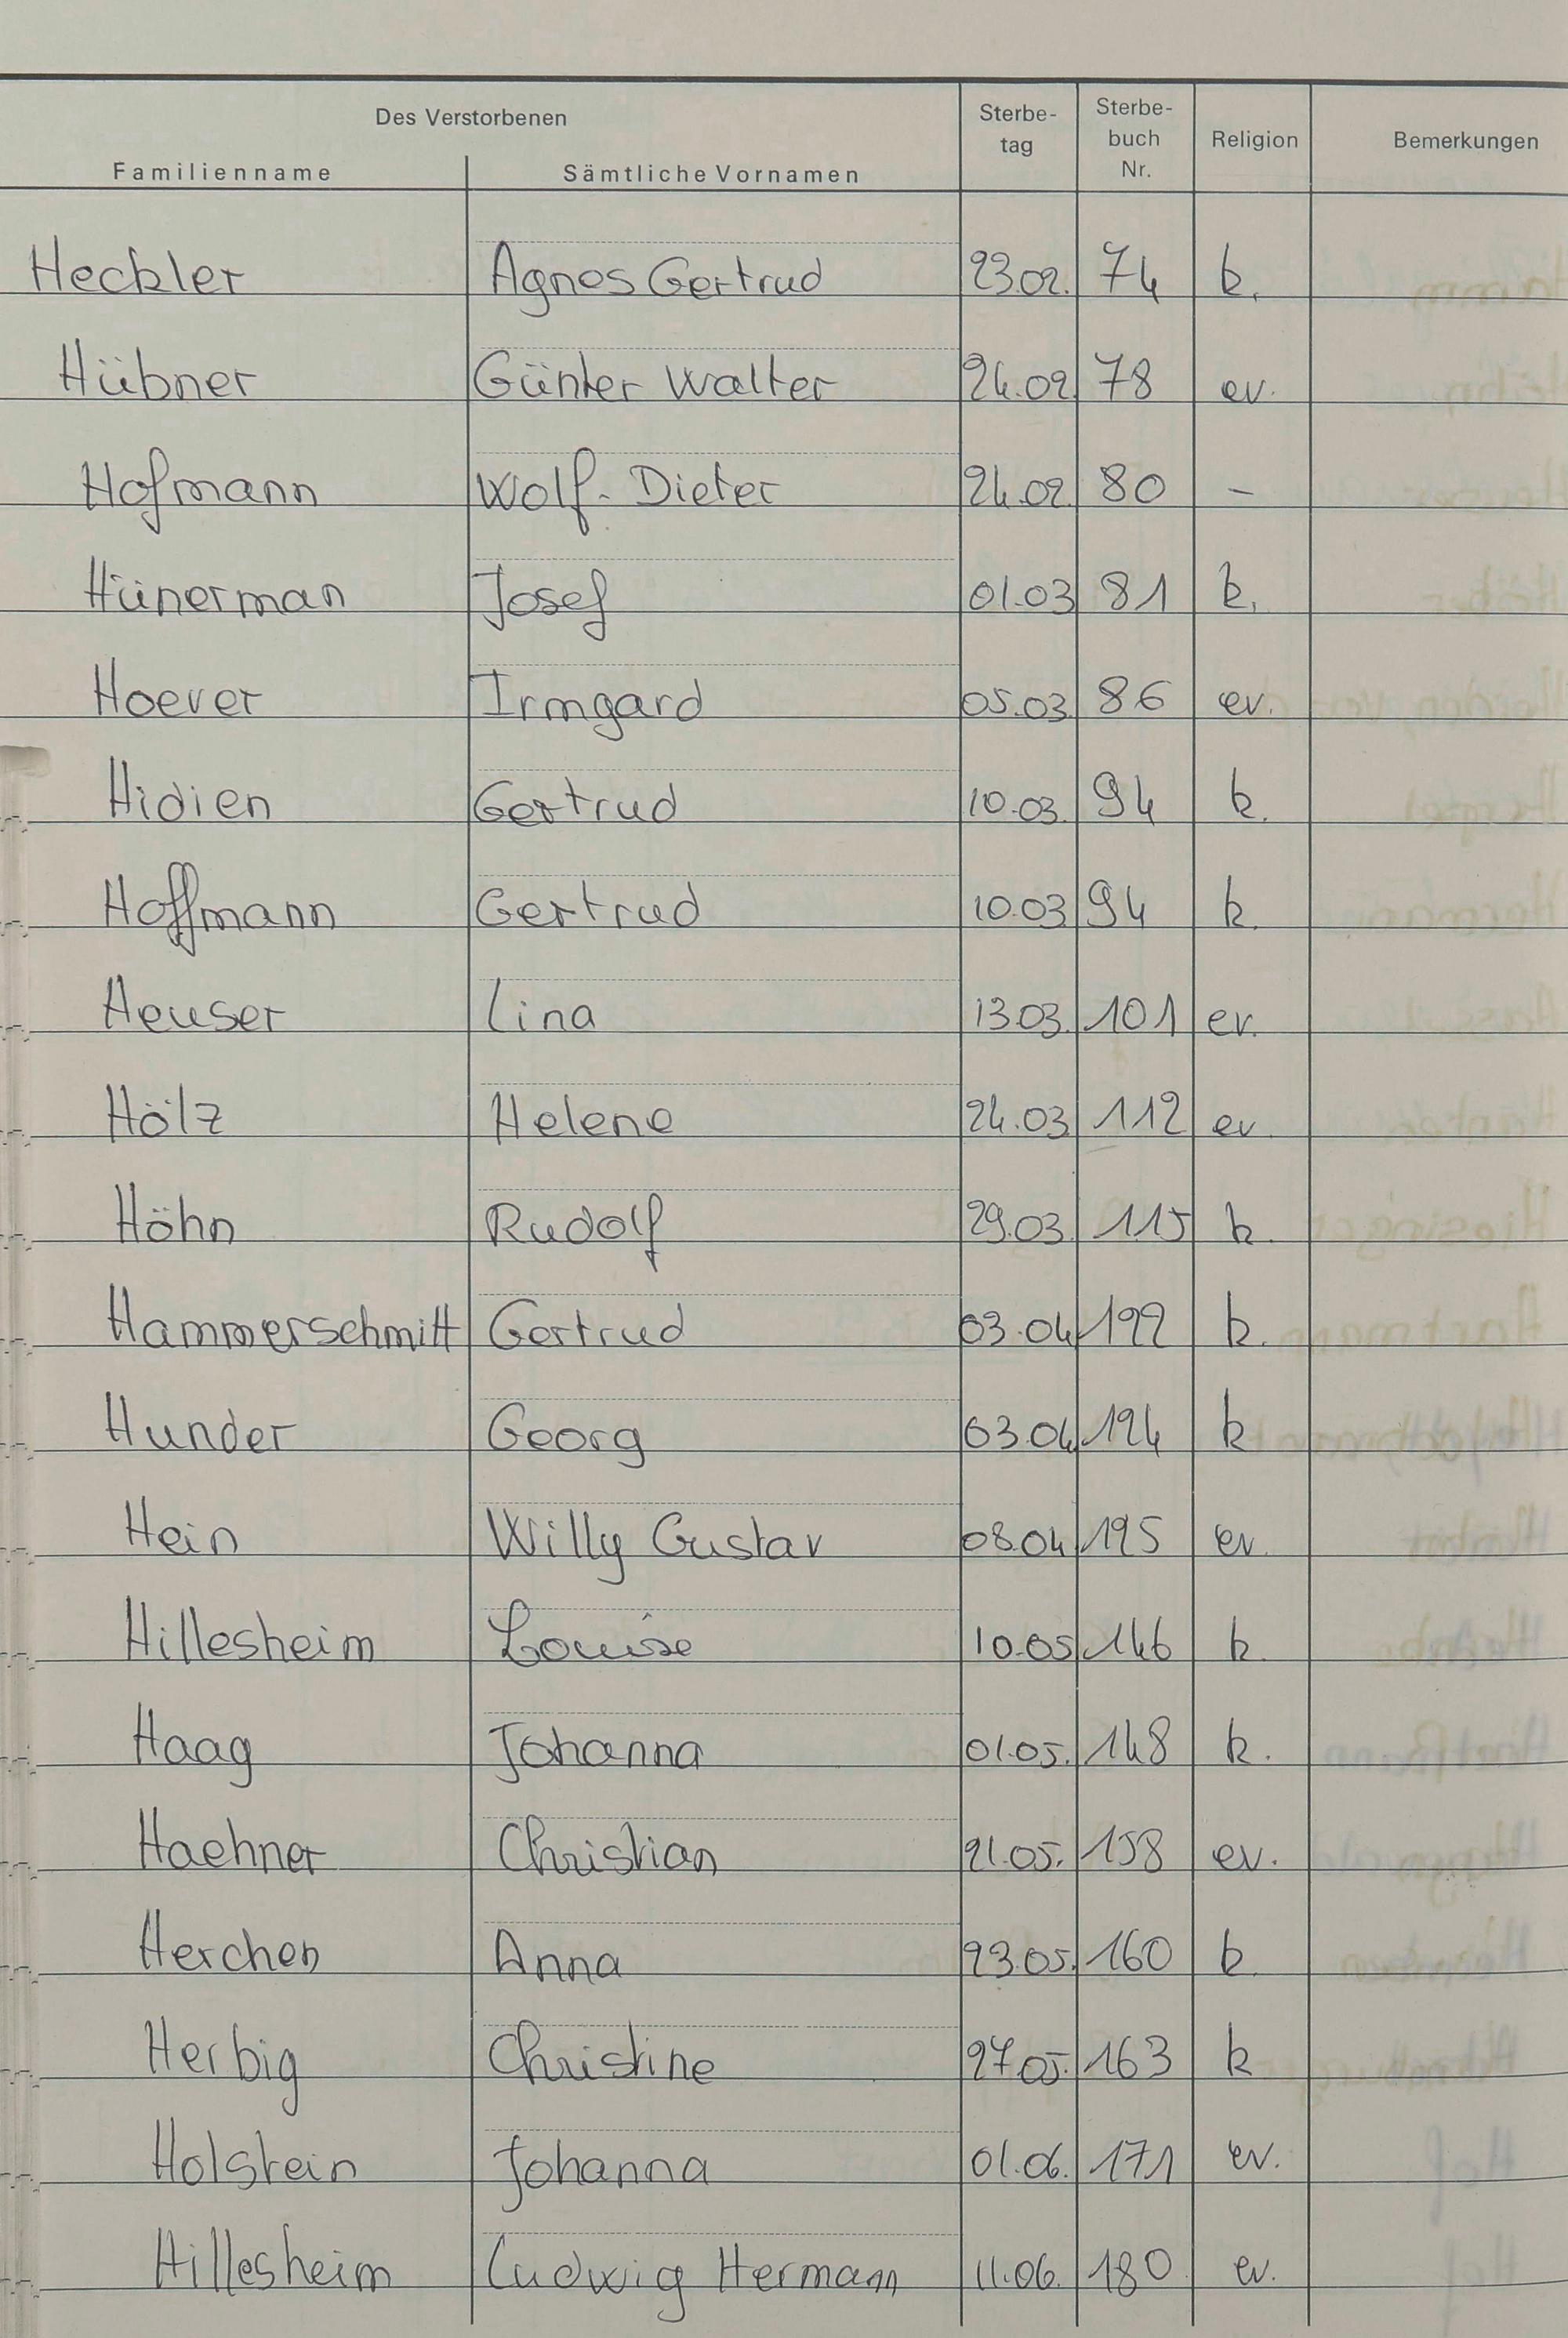 Des Verstorbenen
Familienname Sämtliche Vornamen Sterbe-tag Sterbe-buch Nr. Religion Bemerkungen
Heckler Agnes Gertrud 23.02. 74 k.
Hübner Günter Walter 24.02. 78 ev.
Hofmann Wolf-Dieter 24.02. 80 –
Hünerman Josef 01.03 81 k.
Hoever Irmgard 05.03. 86 ev.
Hidien Gertrud 10.03. 94 k.
Hoffmann Gertrud 10.03 94 k.
Heuser Lina 13.03. 101 ev.
Hölz Helene 24.03 112 ev.
Höhn Rudolf 29.03. 115 k.
Hammerschmitt Gertrud 03.04 122 k.
Hunder Georg 03.04 124 k
Hein Willy Gustav 08.04 125 ev.
Hillesheim Louise 10.05 146 k.
Haag Johanna 01.05. 148 k.
Haehner Christian 21.05. 158 ev.
Herchen Anna 23.05. 160 k.
Herbig Christine 27.05. 163 k
Holstein Johanna 01.06. 171 ev.
Hillesheim Ludwig Hermann 11.06. 180 ev.